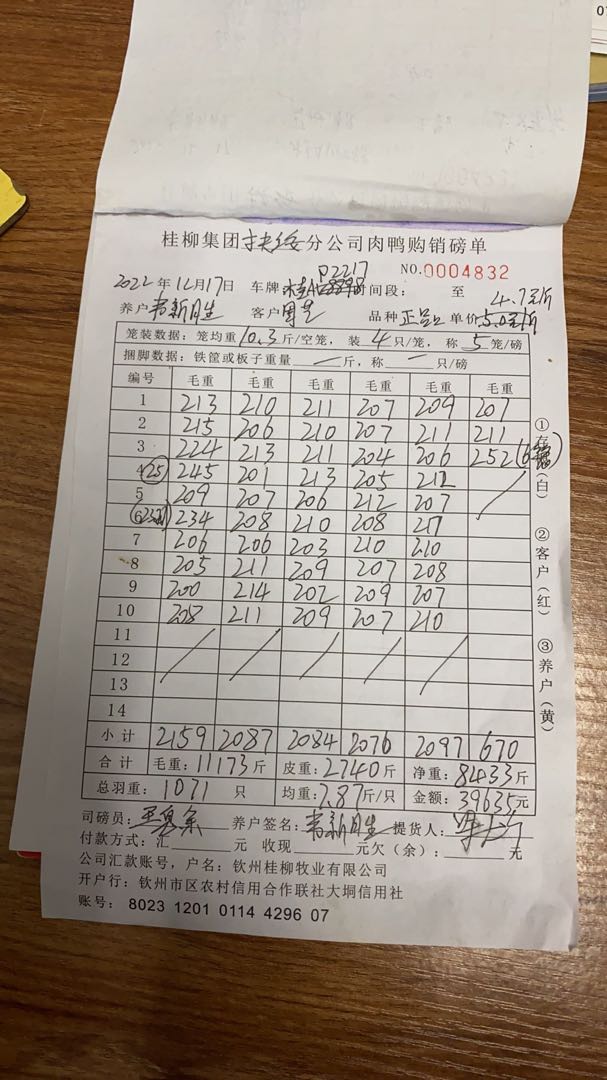 桂柳集团 分公司肉鸭购销磅单
P2217
NO.0004832
2022年12月17日 车牌 时间段: 至
4.7元/斤
养户 韦新日生 客户 周 品种 正品 单价 5.0元/斤
笼装数据: 笼均重 10.3 斤/空笼, 装 4 只/笼, 称 5 笼/磅
捆脚数据: 铁筐或板子重量 — 斤, 称 — 只/磅
编号 毛重 毛重 毛重 毛重 毛重 毛重
1 213 210 211 207 209 207
2 215 206 210 207 211 211
3 224 213 211 204 206 252 (6笼)
4 (25) 245 201 213 205 212
5 209 207 206 212 207
6 234 208 210 208 217
7 206 206 203 210 210
8 205 211 209 207 208
9 200 214 202 209 207
10 208 211 209 207 210
11
12
13
14
小计 2159 2087 2084 2076 2097 670
合计 毛重: 11173 斤 皮重: 2740 斤 净重: 8433 斤
总羽重: 1071 只 均重: 7.87 斤/只 金额: 39635 元
司磅员: 养户签名: 韦新日生 提货人:
付款方式: 汇 元 收现 元欠(余): 元
公司汇款账号, 户名: 钦州桂柳牧业有限公司
开户行: 钦州市区农村信用合作联社大垌信用社
账号: 8023 1201 0114 4296 07
①存(白)
②客户(红)
③养户(黄)